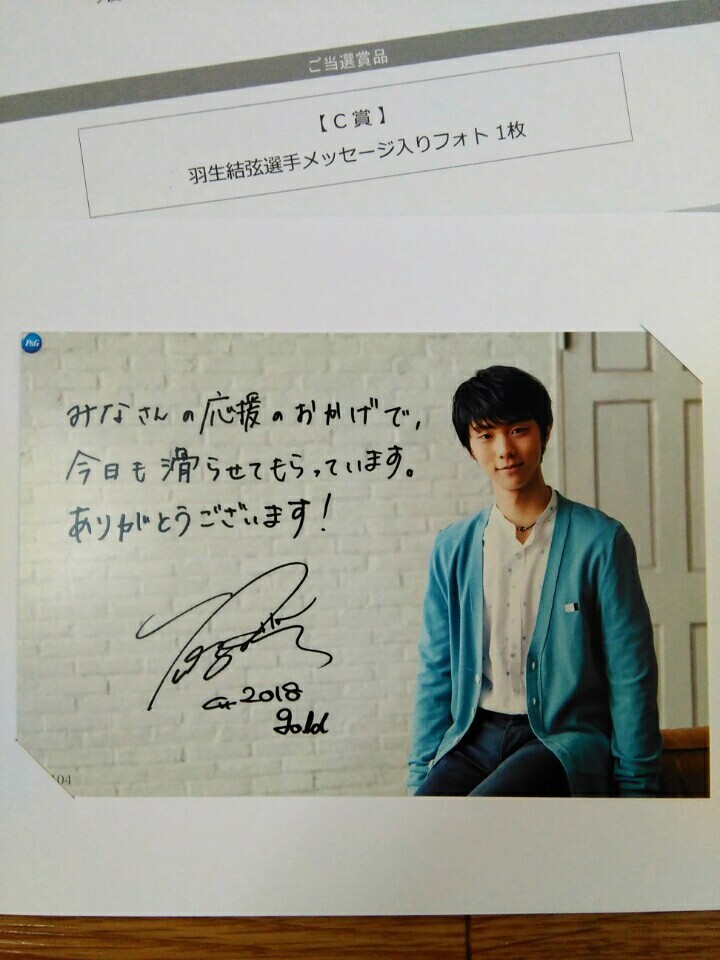 ご当選賞品
【C賞】
羽生結弦選手メッセージ入りフォト 1枚
P&G
みなさんの応援のおかげで,
今日も滑らせてもらっています。
ありがとうございます!
2018
gold
104